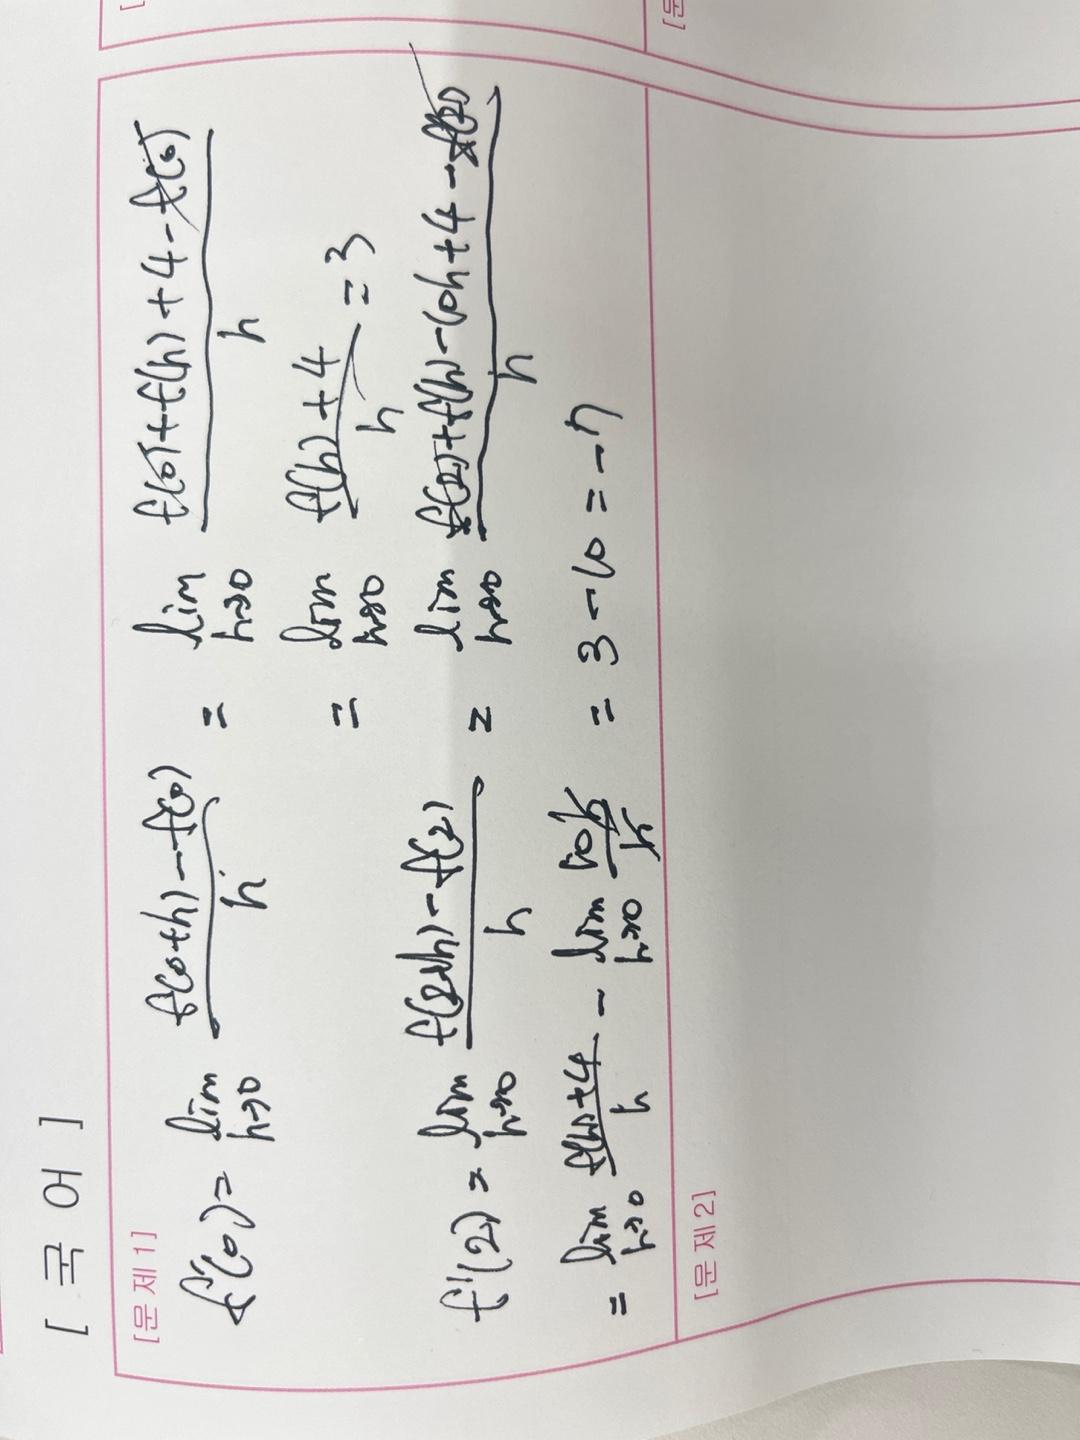 [ 국 어 ]
[문제 1]
f'(0) = lim h→0 f(0+h)-f(0) / h = lim h→0 f(0)+f(h)+4-f(0) / h
= lim h→0 f(h)+4 / h = 3
f'(2) = lim h→0 f(2+h)-f(2) / h = lim h→0 f(2)+f(h)-10h+4-f(2) / h
= lim h→0 f(h)+4 / h - lim h→0 10h / h = 3-10 = -7
[문제 2]